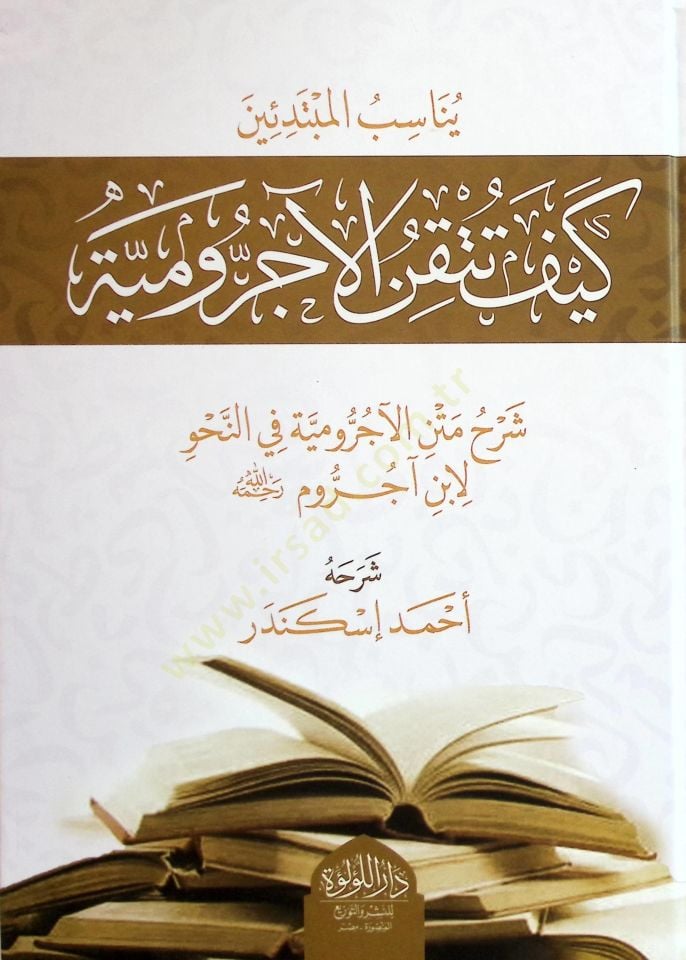 يُنَاسِبُ المُبْتَدِئِينَ
كَيْفَ تُتْقِنُ الآجُرُّومِيَّةَ
شَرْحُ مَتْنِ الآجُرُّومِيَّة فِي النَّحْوِ
لِابْنِ آجُرُّوم رَحِمَهُ اللهُ
شَرَحَهُ
أَحْمَد إِسْكَنْدَر
www.irsad.com.tr
دار اللؤلؤة
للنشر والتوزيع
المنصورة - مصر